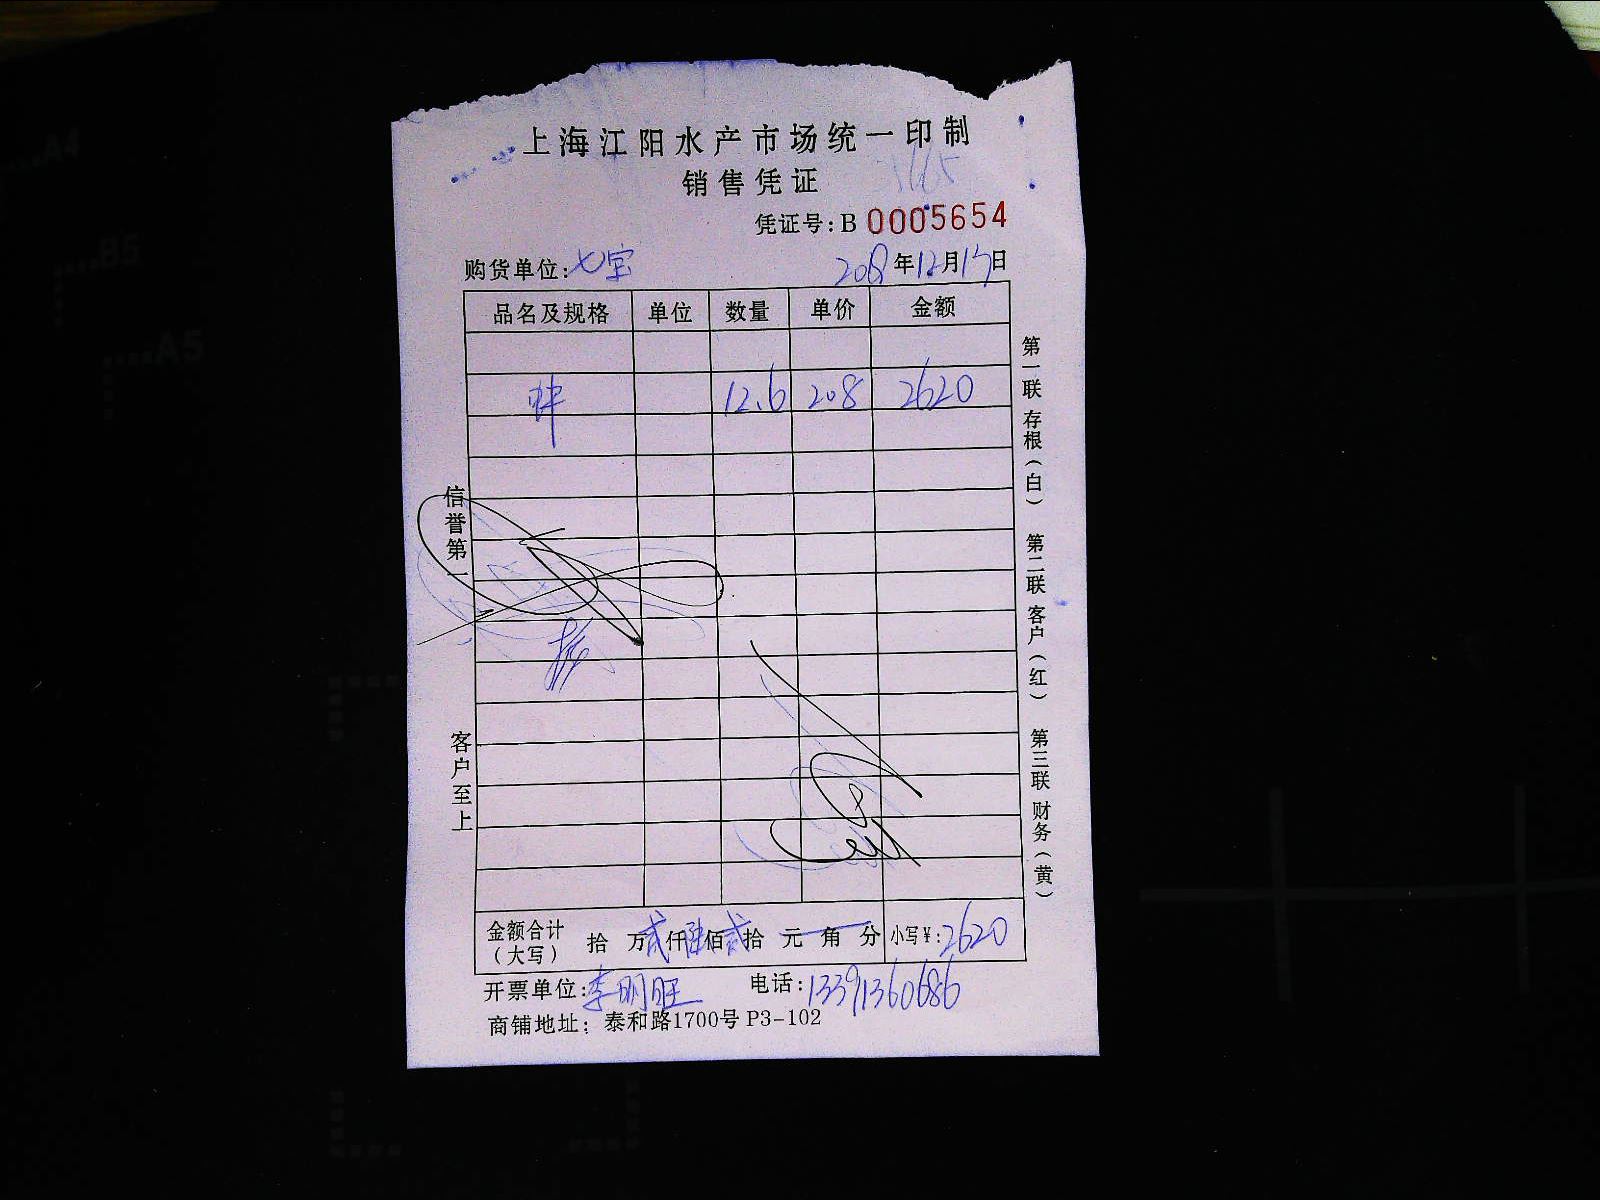 上海江阳水产市场统一印制
销售凭证
凭证号:B 0005654
购货单位:七宝 2018年12月17日
品名及规格 单位 数量 单价 金额
12.6 208 2620
信誉第一
客户至上
第一联 存根(白) 第二联 客户(红) 第三联 财务(黄)
金额合计(大写) 拾 万贰仟陆佰贰拾 元 角 分 小写¥:2620
开票单位:李明旺 电话:13391360686
商铺地址:泰和路1700号 P3-102
A4
B5
A5